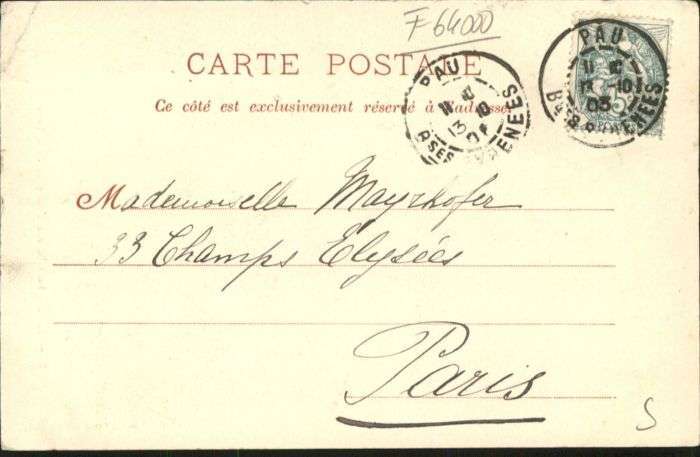 F 64000
CARTE POSTALE
Ce côté est exclusivement réservé à l'adresse
PAU
13 10
BSES PYRENEES
PAU
13 -10
03
BSES PYRENEES
5
Mademoiselle Mayrhofer
33 Champs Elysées
Paris
S